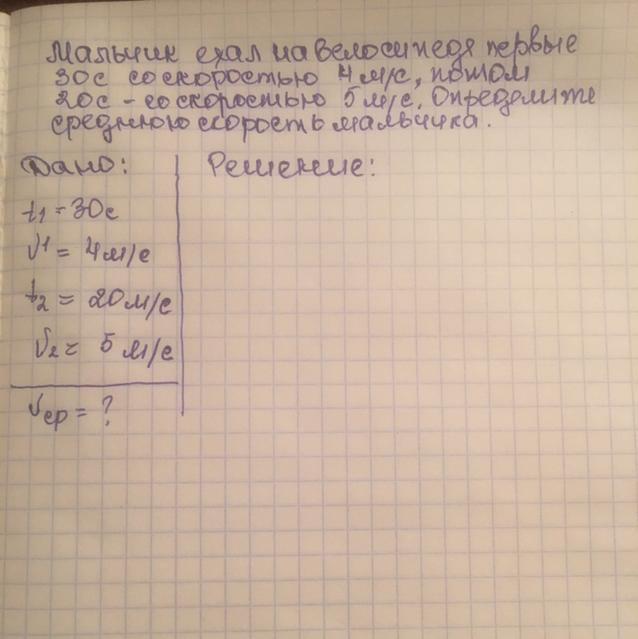 Мальчик ехал на велосипедя первые
30с со скоростью 4 м/с, потом
20с - со скоростью 5 м/с. Определите
среднюю скорость мальчика.
Дано:
Решение:
t1 = 30с
V1 = 4м/с
t2 = 20м/с
V2 = 5 м/с
Vср = ?